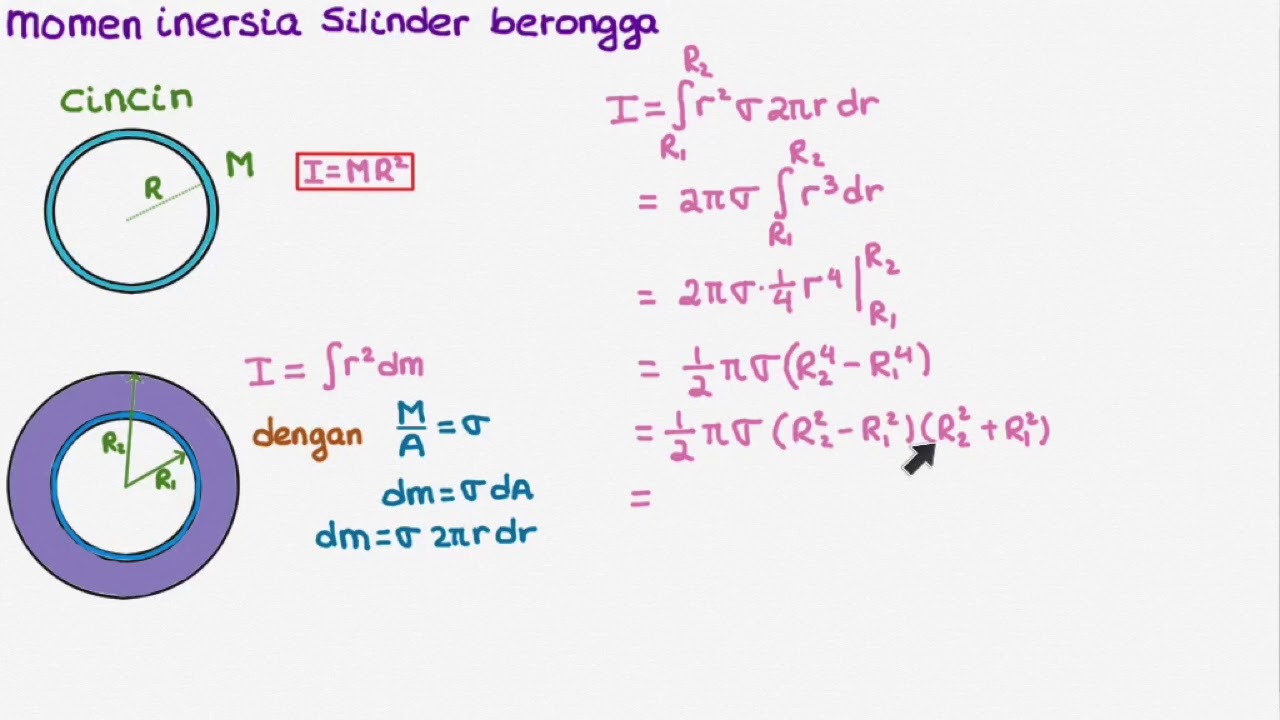 Momen inersia Silinder berongga
cincin
R
M
I=MR²
R₂
R₁
I = ∫r²dm
dengan M/A = σ
dm=σ dA
dm=σ 2πr dr
I = ∫_{R₁}^{R₂} r² σ 2πr dr
= 2πσ ∫_{R₁}^{R₂} r³ dr
= 2πσ · 1/4 r⁴ |_{R₁}^{R₂}
= 1/2 πσ(R₂⁴ − R₁⁴)
= 1/2 πσ (R₂² − R₁²)(R₂² + R₁²)
=